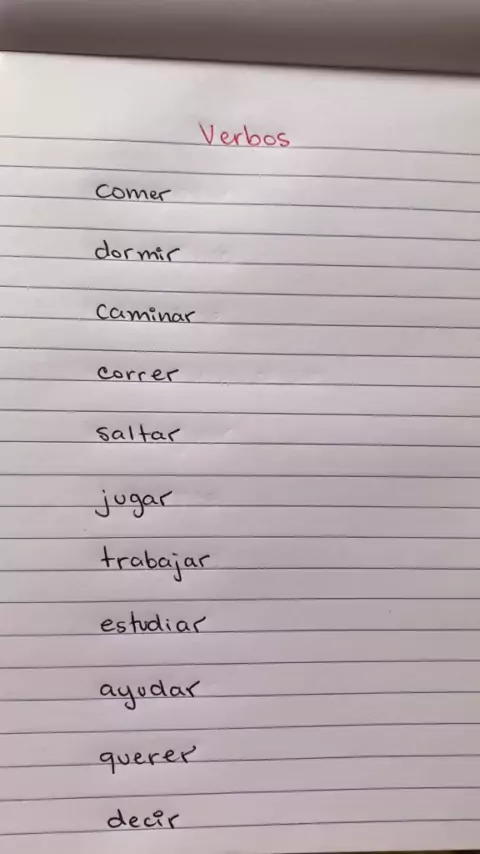 Verbos
comer
dormir
caminar
correr
saltar
jugar
trabajar
estudiar
ayudar
querer
decir